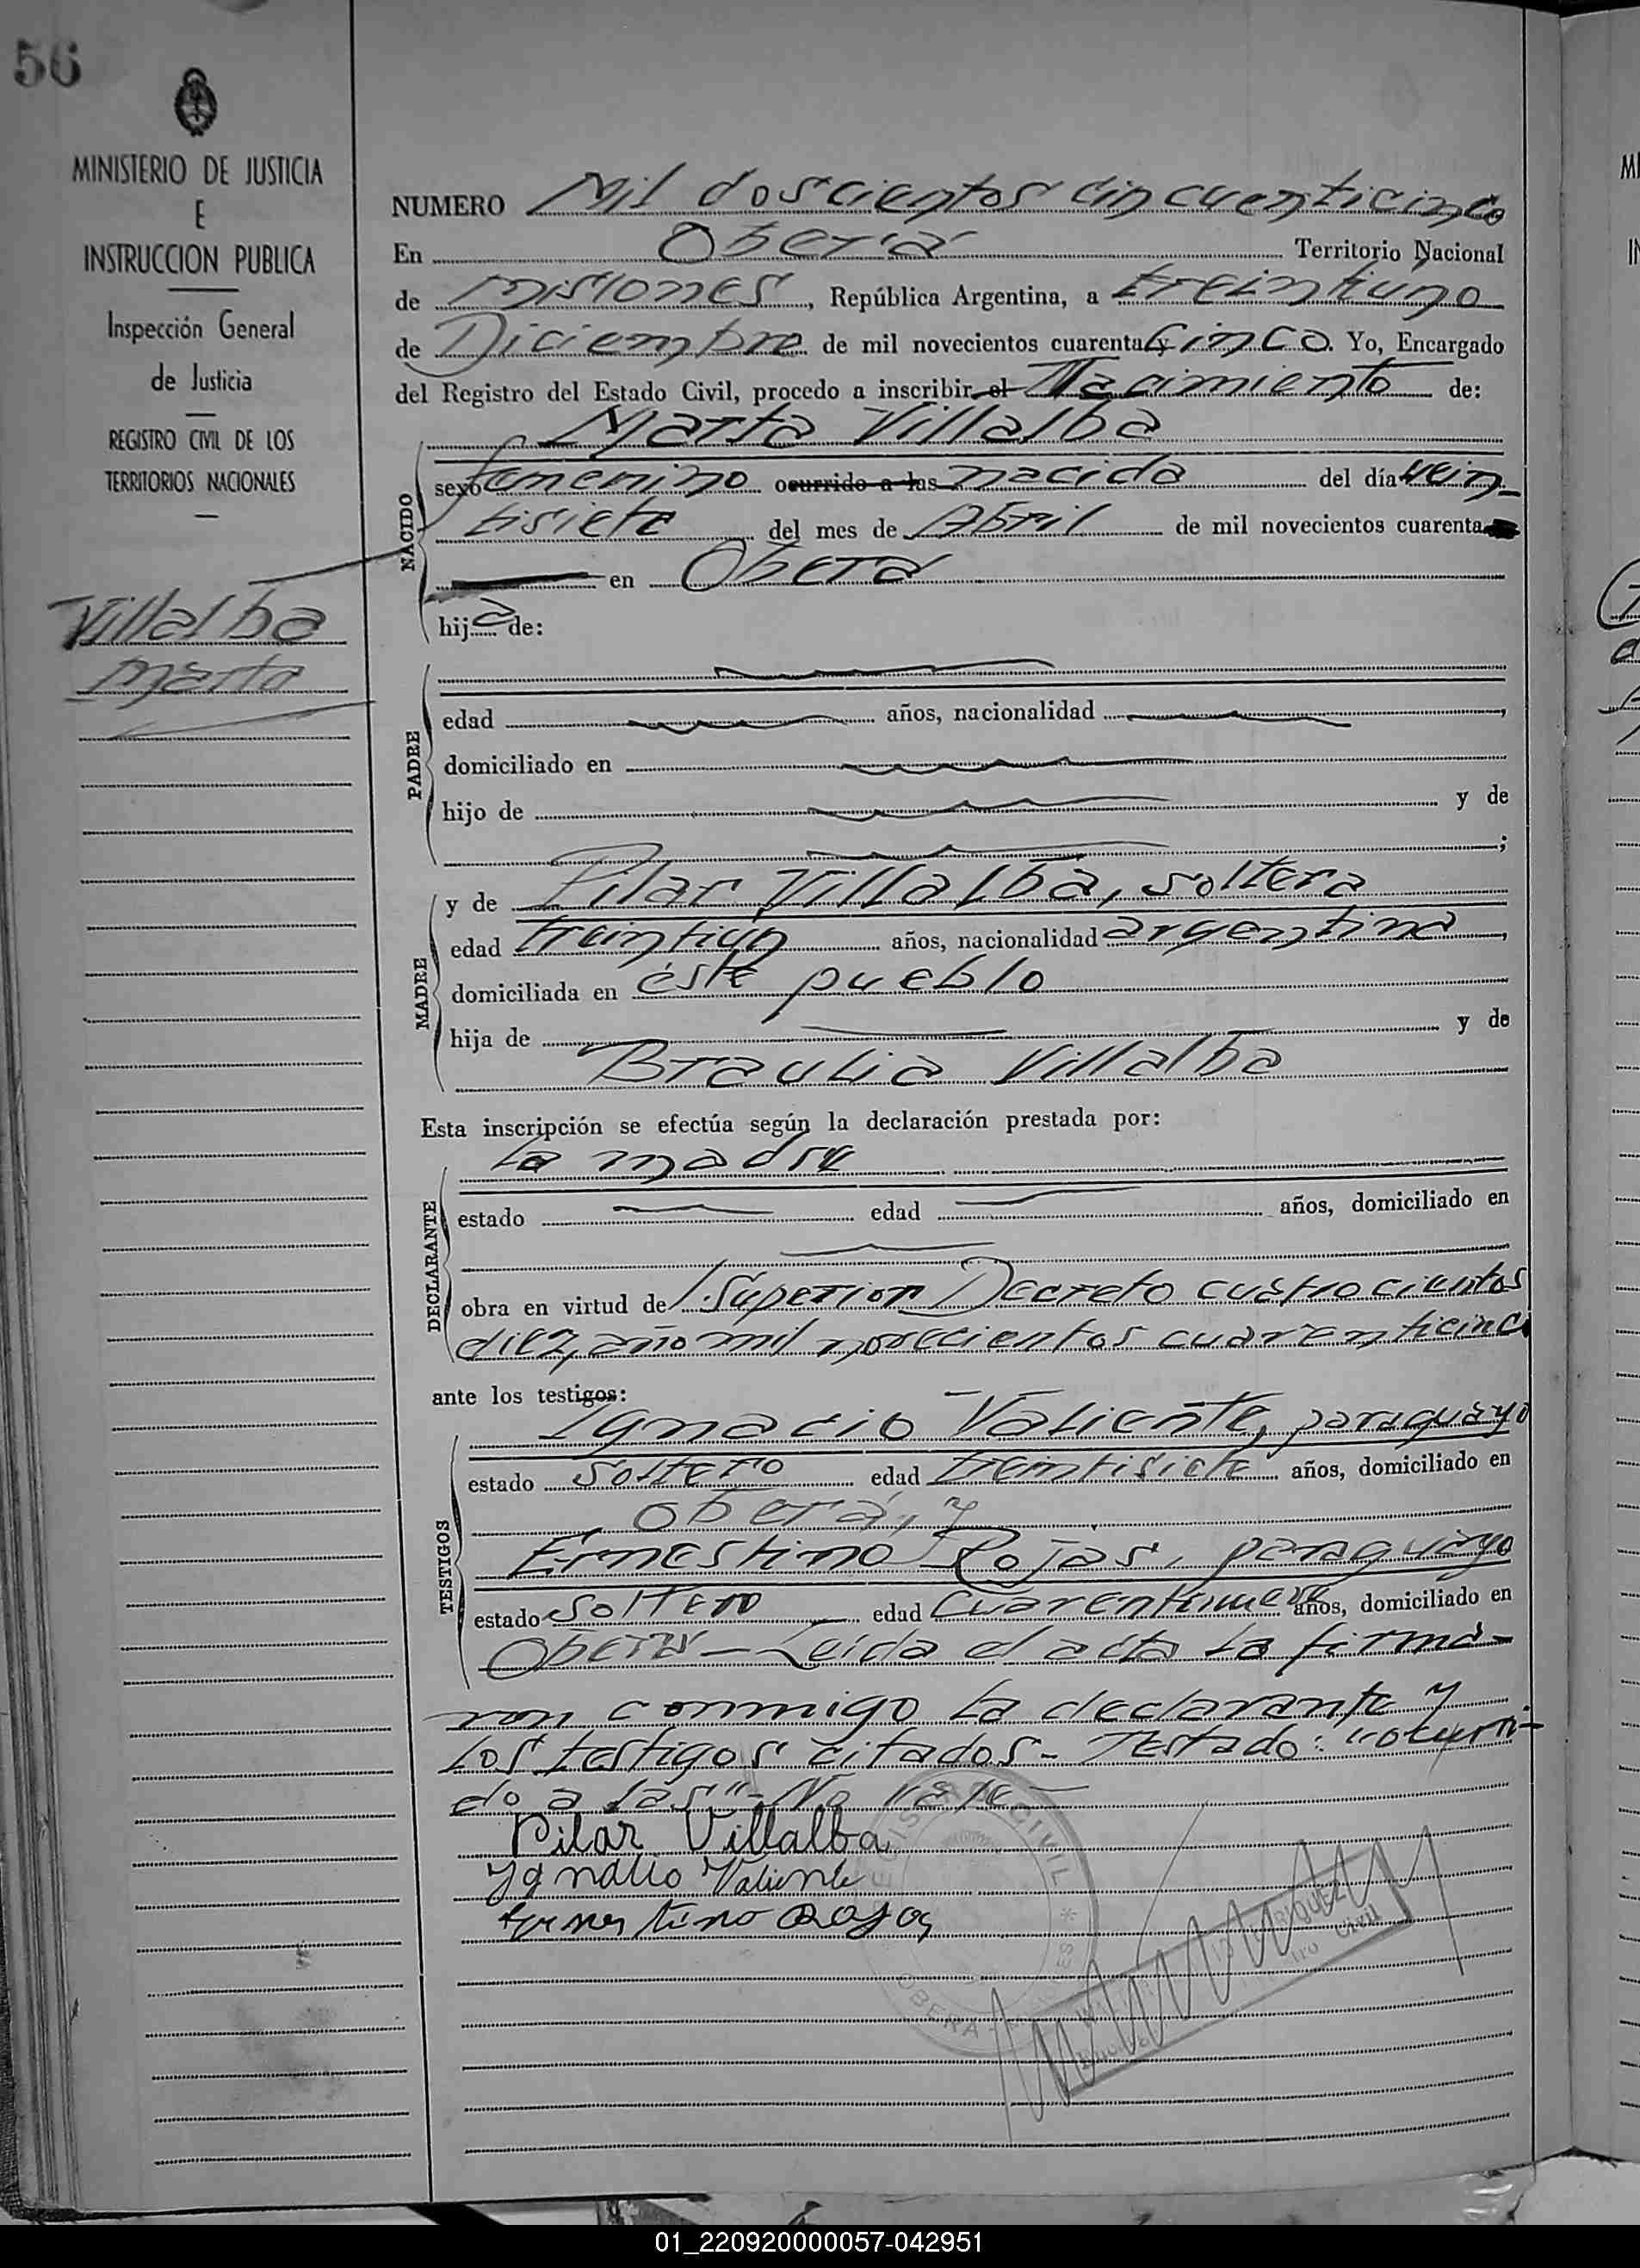 56
MINISTERIO DE JUSTICIA
E
INSTRUCCION PUBLICA
Inspección General
de Justicia
REGISTRO CIVIL DE LOS
TERRITORIOS NACIONALES
Villalba
Marta
NUMERO Mil doscientos cincuenticinco
En Oberá Territorio Nacional
de Misiones, República Argentina, a treintiuno
de Diciembre de mil novecientos cuarenta y cinco. Yo, Encargado
del Registro del Estado Civil, procedo a inscribir el Nacimiento de:
Marta Villalba
NACIDO
sexo femenino ocurrido a las nacida del día vein-
tisiete del mes de Abril de mil novecientos cuarenta
en Oberá
hija de:
PADRE
edad años, nacionalidad ,
domiciliado en
hijo de y de
;
MADRE
y de Pilar Villalba, soltera
edad treintiun años, nacionalidad argentina,
domiciliada en éste pueblo
hija de y de
Braulia Villalba
Esta inscripción se efectúa según la declaración prestada por:
La madre
DECLARANTE
estado edad años, domiciliado en
obra en virtud de Superior Decreto cuatrocientos
diez, año mil novecientos cuarenticinco
ante los testigos:
TESTIGOS
Ignacio Valiente, paraguayo
estado soltero edad treintisiete años, domiciliado en
Oberá, y
Ernestino Rojas, paraguayo
estado soltero edad años, domiciliado en
Oberá - Leida el acta la firma-
ron conmigo la declarante y
los testigos citados - Testado: "ocurri-
do a las" - No vale -
Pilar Villalba
Ygnacio Valiente
Ernestino Rojas
REGISTRO CIVIL
OBERA
01_220920000057-042951